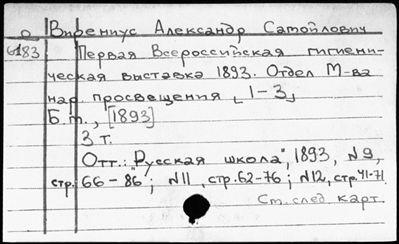 о Вирениус Александр Самойлович
6183 Первая Всероссийская гигиени-
ческая выставка 1893. Отдел М-ва
нар. просвещения ⌞1-3⌟
Б.т., [1893]
3 т.
Отт.: "Русская школа", 1893, №9,
стр. 66-86; №11, стр. 62-76; №12, стр. 41-71.
См. след карт.